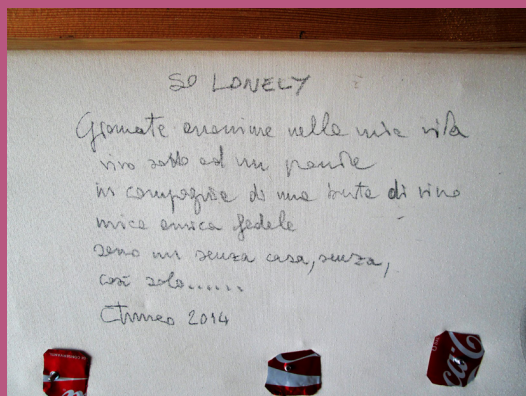 SO LONELY
Giornate anonime nella mia vita
vivo sotto ad un ponte
in compagnia di una busta di vino
mica amica fedele
sono un senza casa, senza,
così solo......
2014